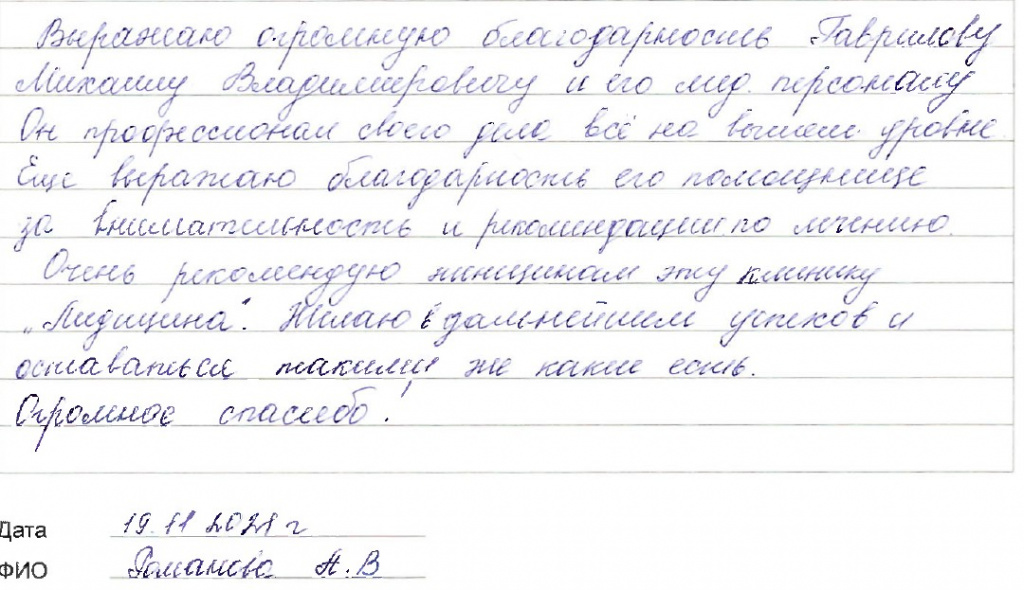 Выражаю огромную благодарность Гаврилову
Михаилу Владимировичу и его мед. персоналу
Он профессионал своего дела всё на вышем уровне.
Еще выражаю благодарность его помощнице
за внимательность и рекомендации по лечению.
Очень рекомендую женщинам эту клинику
„Лидицина". Желаю в дальнейшем успехов и
оставаться такими же какие есть.
Огромное спасибо!
Дата 19.11 2021 г
ФИО Романова А.В